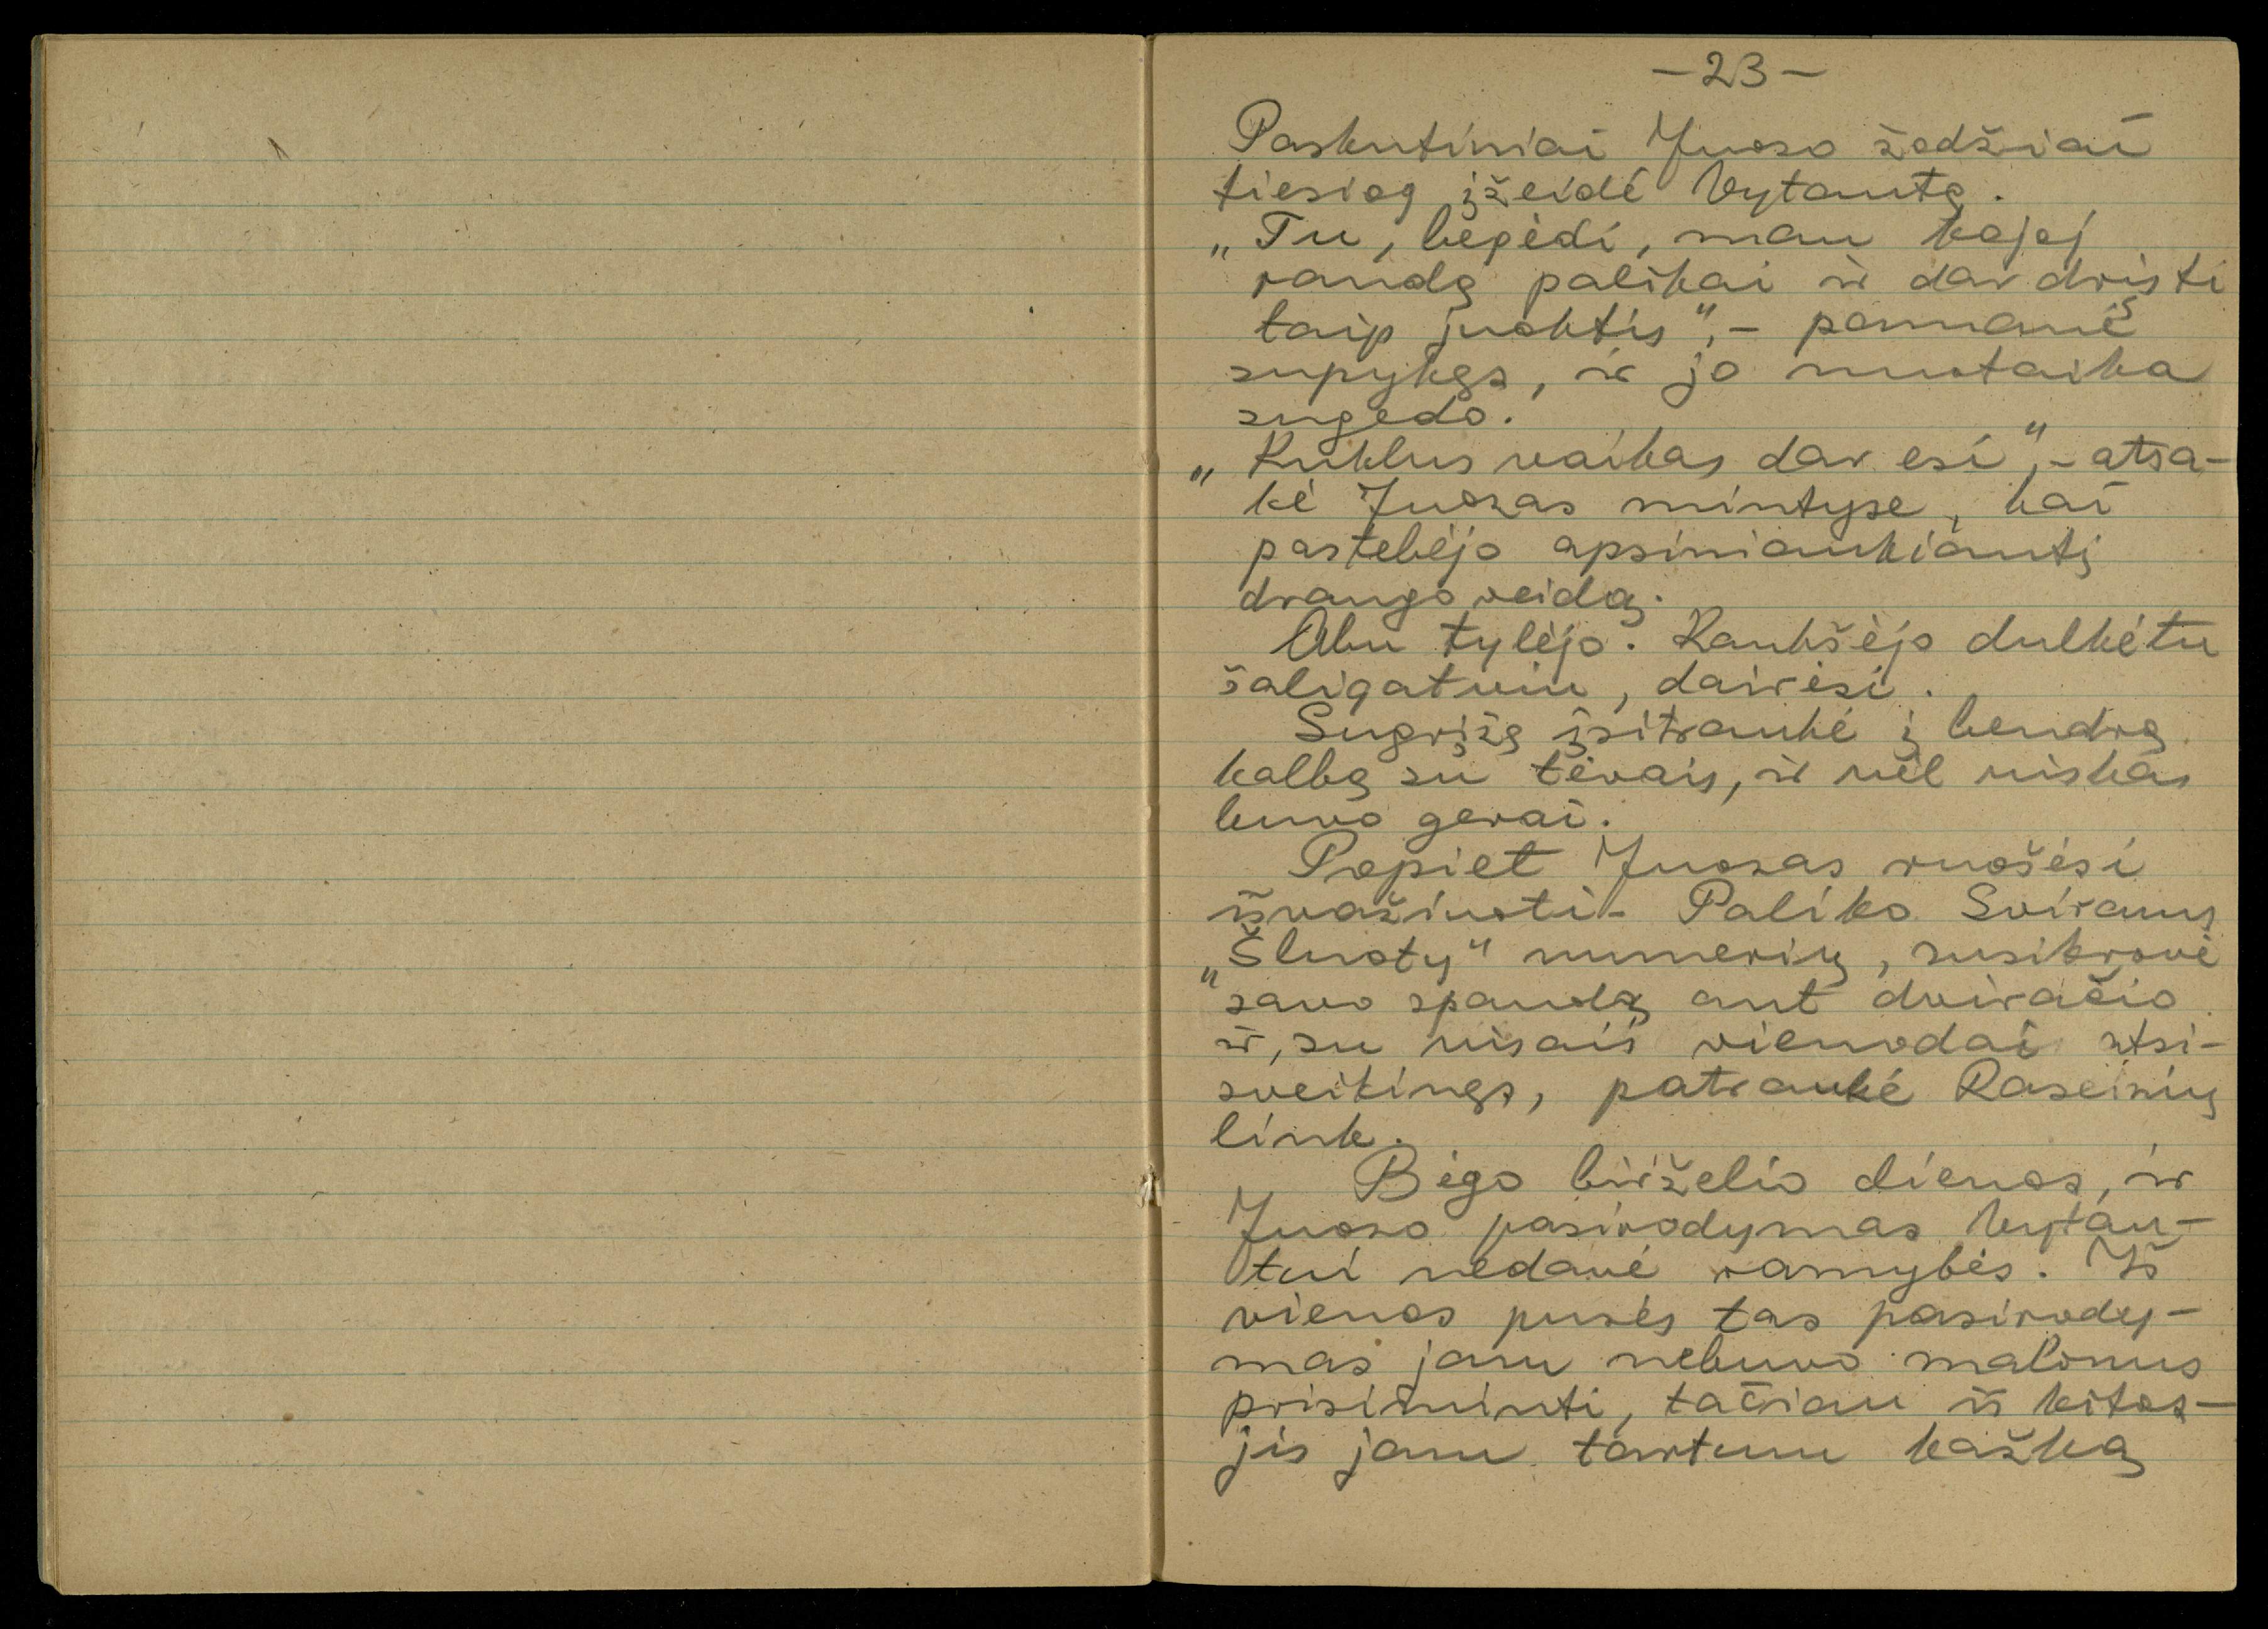 -23-
Paskutiniai Juozo žodžiai
tiesiog įžeidė Vytautą.
„Tu, begėdi, man kojoj
randą palikai ir dar dristi
taip juoktis", - pamanė
supykęs, ir jo nuotaika
sugedo.
„Kuklus vaikas dar esi", - atsa-
kė Juozas mintyse, kai
pastebėjo apsiniaukiantį
draugo veidą.
Abu tylėjo. Kaukšėjo dulkėtu
šaligatviu, dairėsi.
Sugrįžę įsitraukė į bendrą
kalbą su tėvais, ir vėl viskas
buvo gerai.
Popiet Juozas ruošėsi
išvažiuoti. Paliko Sviranų
„Šluoty" numerių, susikrovė
savo spaudą ant dviračio
ir, su visais vienodai atsi-
sveikinęs, patraukė Raseinių
link.
Bėgo birželio dienos, ir
Juozo pasirodymas Vytau-
tui nedavė ramybės. Iš
vienos pusės tas pasirody-
mas jam nebuvo malonus
prisiminti, tačiau iš kitos -
jis jam tartum kažką